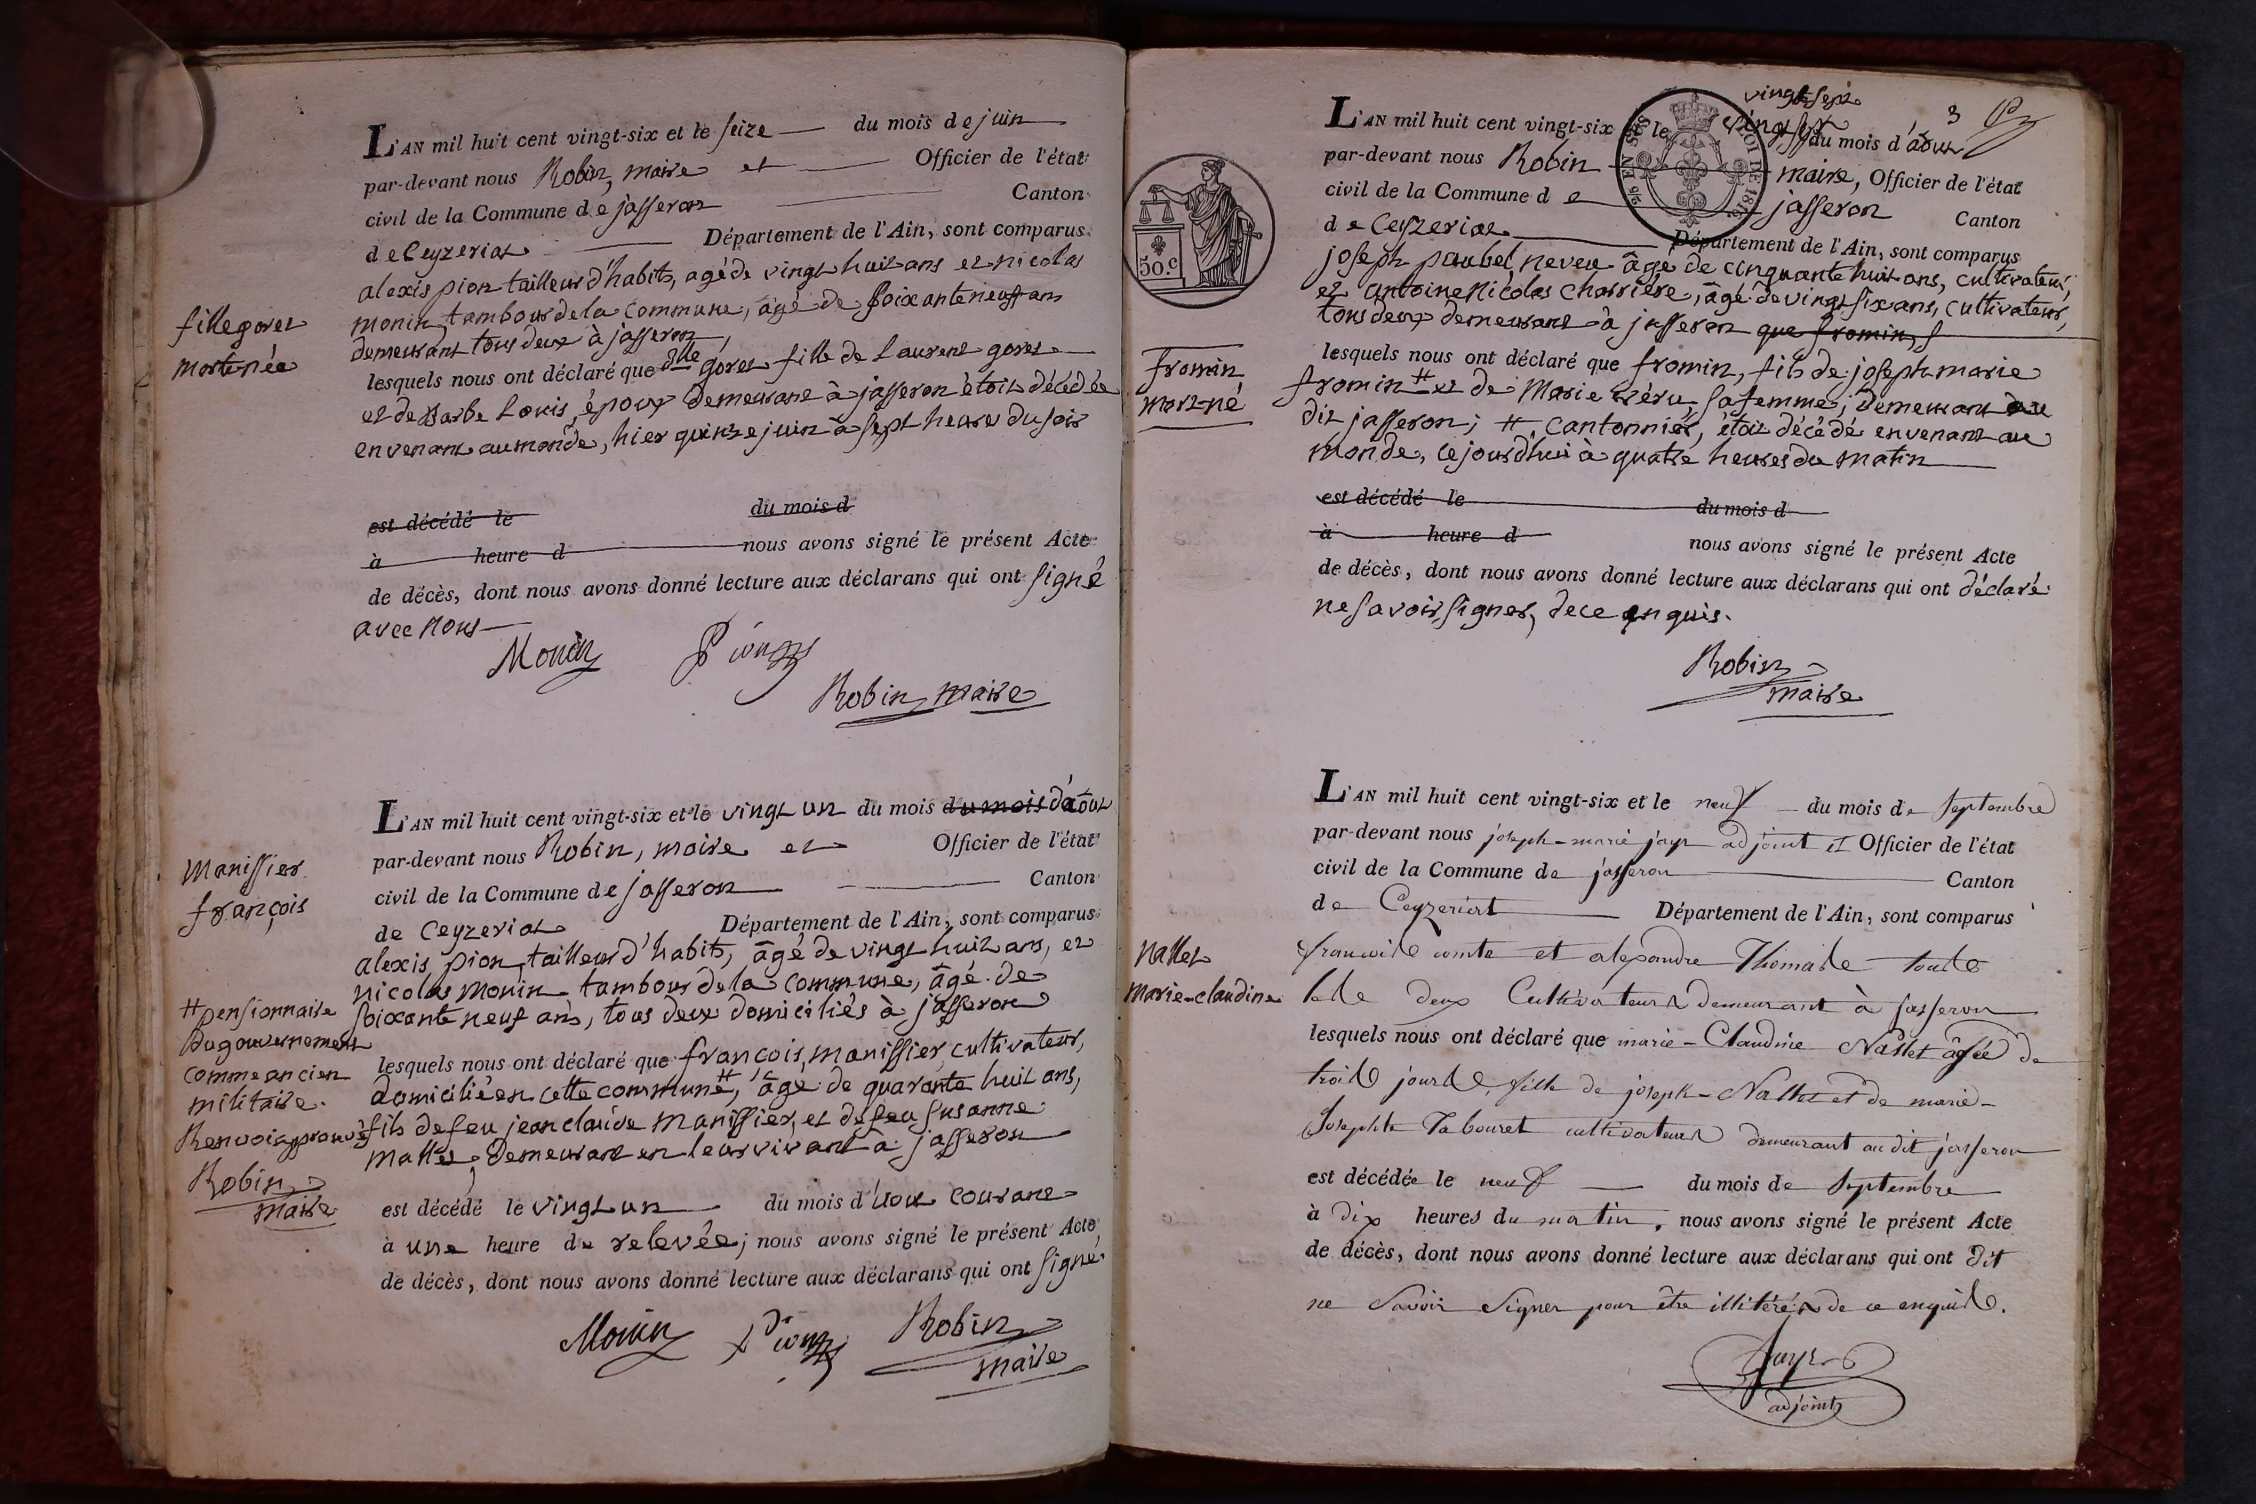 L'AN mil huit cent vingt-six et le seize du mois de juin
par-devant nous Robin, maire et Officier de l'état
civil de la Commune de jasseron Canton
de Ceyzeriat Département de l'Ain, sont comparus
alexis pion tailleur d'habits, agé de vingt huit ans et nicolas
monin, tambour de la commune, âgé de soixante neuf ans
demeurant tous deux à jasseron,
fille goret
mort-née
lesquels nous ont déclaré que dlle goret fille de Laurent goret
et de Barbe Louis, époux demeurant à jasseron étoit décédée
en venant au monde, hier quinze juin à sept heure du soir
est décédé le du mois d
à heure d nous avons signé le présent Acte
de décès, dont nous avons donné lecture aux déclarans qui ont signé
avec nous
Monin Pion
Robin maire
L'AN mil huit cent vingt-six et le vingt un du mois du mois d'aout
par-devant nous Robin, maire et Officier de l'état
civil de la Commune de jasseron Canton
de Ceyzeriat Département de l'Ain, sont comparus
alexis pion, tailleur d'habits, âgé de vingt huit ans, et
nicolas monin tambour de la commune, âgé de
soixante neuf ans, tous deux domiciliés à jasseron
Manissier
françois
lesquels nous ont déclaré que françois, manissier, cultivateur,
domicilié en cette commune #, âgé de quarante huit ans,
fils de feu jean claude manissier, et de feu susanne
demeurant en leur vivant à jasseron
# pensionnaire
du gouvernement
comme ancien
militaire.
Renvoi approuvé
Robin
maire
est décédé le vingt un du mois d'aout courant
à une heure de relevée; nous avons signé le présent Acte
de décès, dont nous avons donné lecture aux déclarans qui ont signé
Monin Pion Robin
maire
3
vingt sept
L'AN mil huit cent vingt-six et le vingt sept du mois d'aout
par-devant nous Robin maire, Officier de l'état
civil de la Commune de jasseron Canton
de Ceyzeriat Département de l'Ain, sont comparus
joseph paubel, neveu âgé de cinquante huit ans, cultivateur,
et antoine Nicolas charrière, âgé de vingt six ans, cultivateur,
tous deux demeurant à jasseron que fromin,
50.c
fromin
mort-né
lesquels nous ont déclaré que fromin, fils de joseph marie
fromin # et de Marie sa femme, demeurant au
dit jasseron; # cantonnier, étoit décédé en venant au
monde, cejourd'hui à quatre heures du matin
est décédé le du mois d
à heure d nous avons signé le présent Acte
de décès, dont nous avons donné lecture aux déclarans qui ont déclaré
ne savoir signer, de ce enquis.
Robin
maire
L'AN mil huit cent vingt-six et le neuf du mois de septembre
par-devant nous joseph-marie jayr adjoint et Officier de l'état
civil de la Commune de jasseron Canton
de Ceyzeriat Département de l'Ain, sont comparus
francois comte et alexandre Thomas tous
les deux Cultivateurs demeurant à jasseron
Nallet
Marie-claudine
lesquels nous ont déclaré que marie-Claudine Nallet âgée de
trois jours, fille de joseph-Nallet et de marie-
Josephte Tabouret cultivateurs demeurant au dit jasseron
est décédée le neuf du mois de septembre
à dix heures du matin, nous avons signé le présent Acte
de décès, dont nous avons donné lecture aux déclarans qui ont dit
ne savoir signer pour être illitérés de ce enquis.
Jayr
adjoint